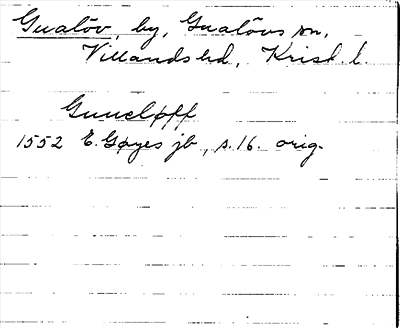 Gualöv, by, Gualövs sn,
Villands hd, Krist. l.
Guneløff
1552 E. Gøyes jb, s. 16. orig.